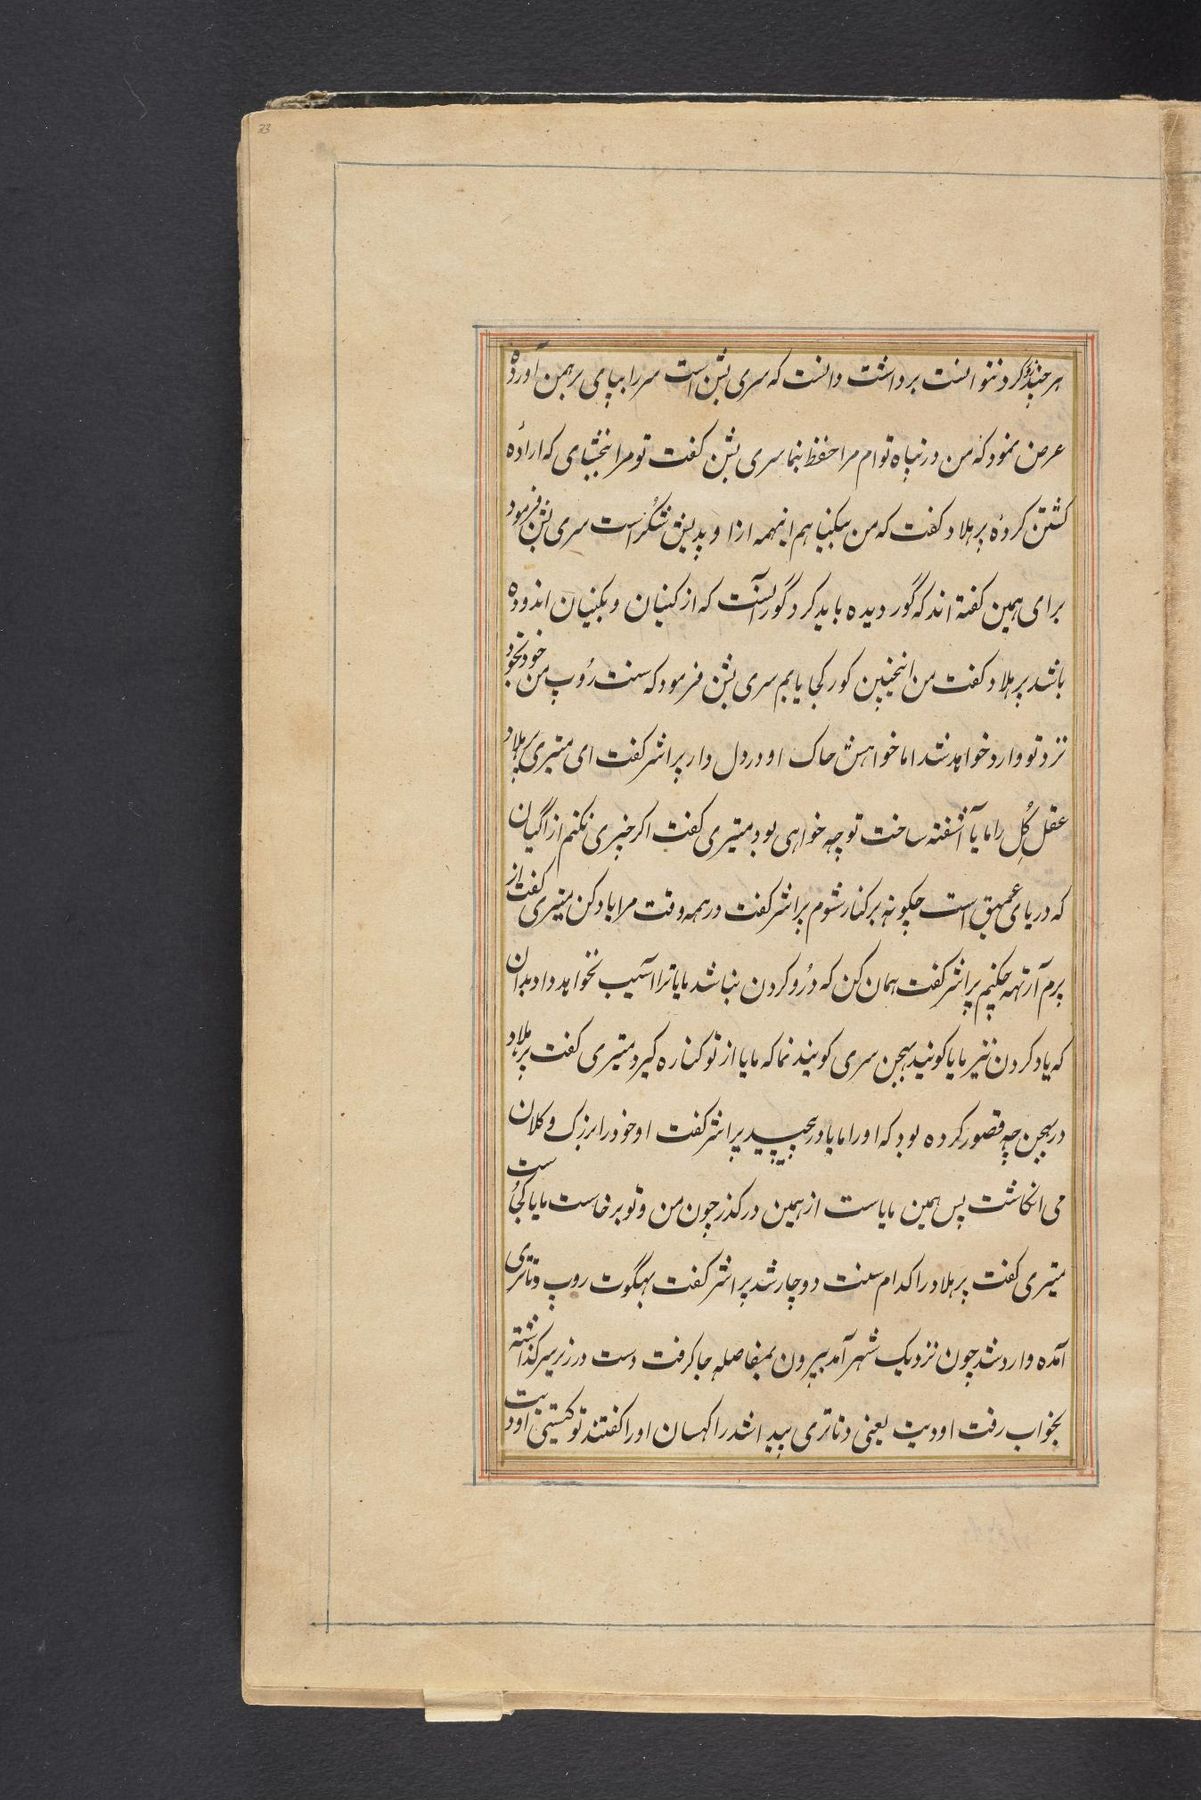 33
هر چند زور کرد نتوانست برداشت دانست که سری بشن است سر را بپای برهمن آورده
عرض نمود که من در پناه توام مرا حفظ بنما سری بشن گفت تو مرا نبخشای که ارادهٔ
کشتن کردهٔ پرهلاد گفت که من بیگناهم اینهمه ازا و پدیش شکر است سری بشن فرمود
برای همین گفته اند که گور دیده باید کرد گور آنست که از کنیان و بکنیان اندوده
باشد پرهلاد گفت من اینچنین گور کجا یابم سری بشن فرمود که سنت روپ من خود بخود
نزد تو وارد خواهد شد اما خواهش خاک او در دل دار پراشر گفت ای متیری پرهلاد
عقل کُل را مایا آشفته ساخت تو چه خواهی بود متیری گفت اکر خبری نکنم از اگیان
که دریای عمیق است چکونه بر کنار شوم پراشر گفت در همه وقت مرا یاد کن متیری گفت از
پرم آرتهه چکنم پراشر گفت همان کن که دُرو کردن نباشد مایا ترا آسیب نخواهد داد بدان
که یاد کردن نیز مایا کویند بهجن سری کویند نما که مایا از تو کناره کیرد متیری گفت پرهلاد
در بهجن چه قصور کرده بود که اورا مایا در پیچید پراشر گفت او خود را بزرک و کلان
می انکاشت پس همین مایاست از همین در کذر چون من و تو برخاست مایا کجاست
متیری گفت پرهلاد را کدام سنت دوچار شد پراشر گفت بهگوت روپ دتاتری
آمده وارد شد چون نزدیک شهر آمد بیرون بمفاصله جا کرفت دست در زیر سر کذاشته
بخواب رفت اودیت یعنی دتاتری پیدا شد راکهسان اورا گفتند تو کیستی اودیت